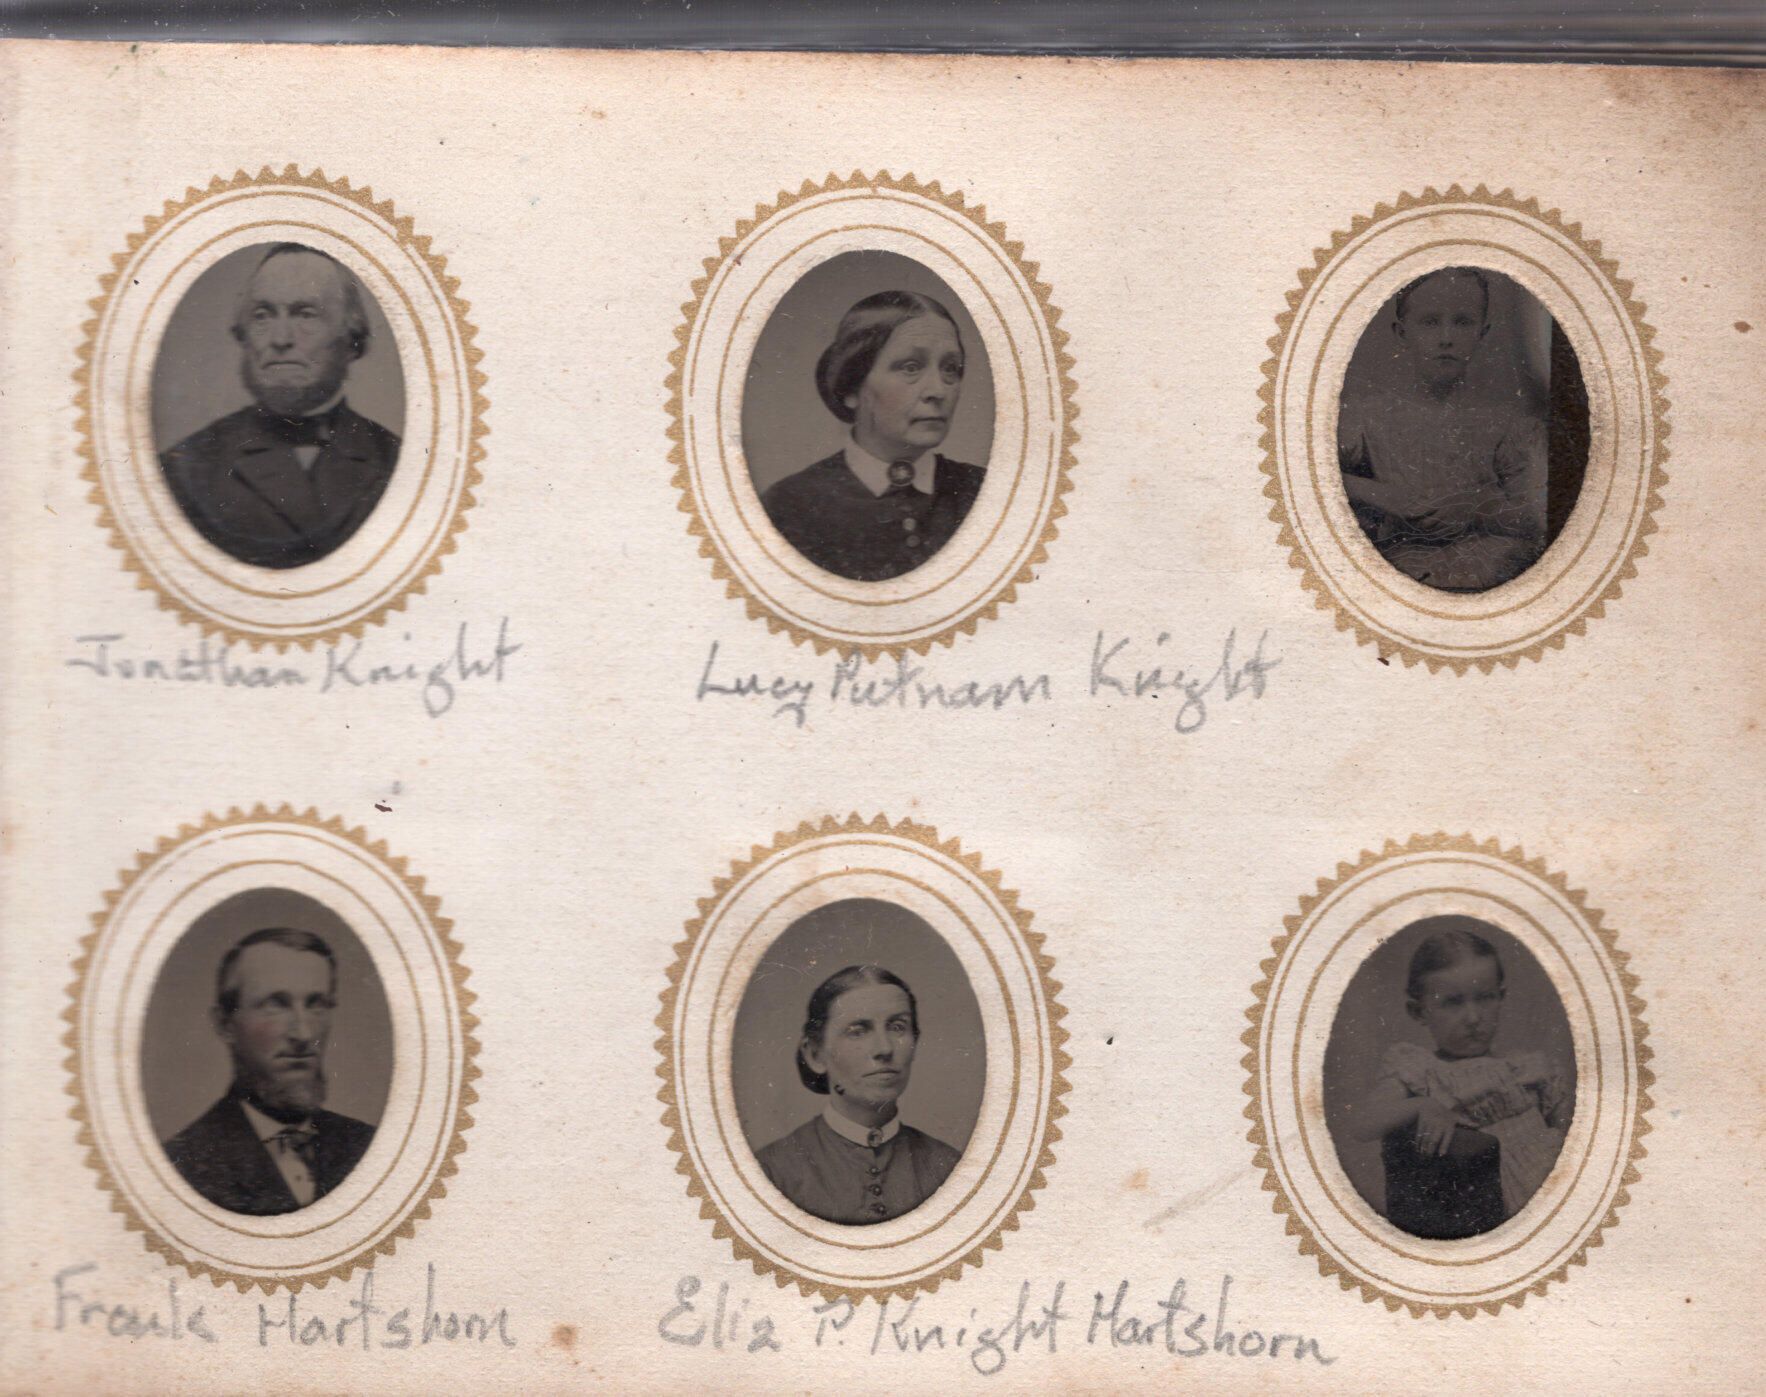 Jonathan Knight
Lucy Putnam Knight
Frank Hartshorn
Eliz P. Knight Hartshorn